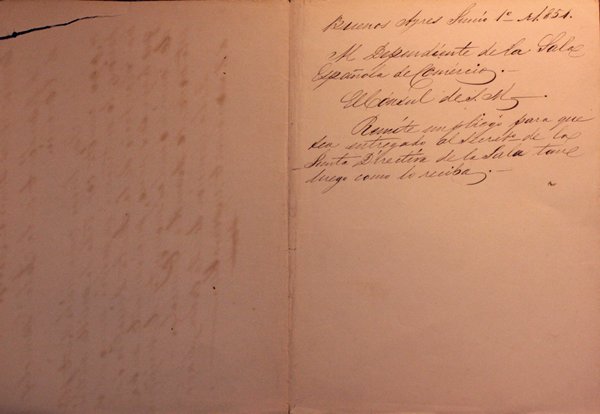 Buenos Ayres Junio 1º de 1851.
Al Dependiente de la Sala
Española de Comercio.—
El Cónsul de S. M.
Remite un pliego para que
sea entregado al Secreto de la
Junta Directiva de la Sala tan
luego como lo reciba.—